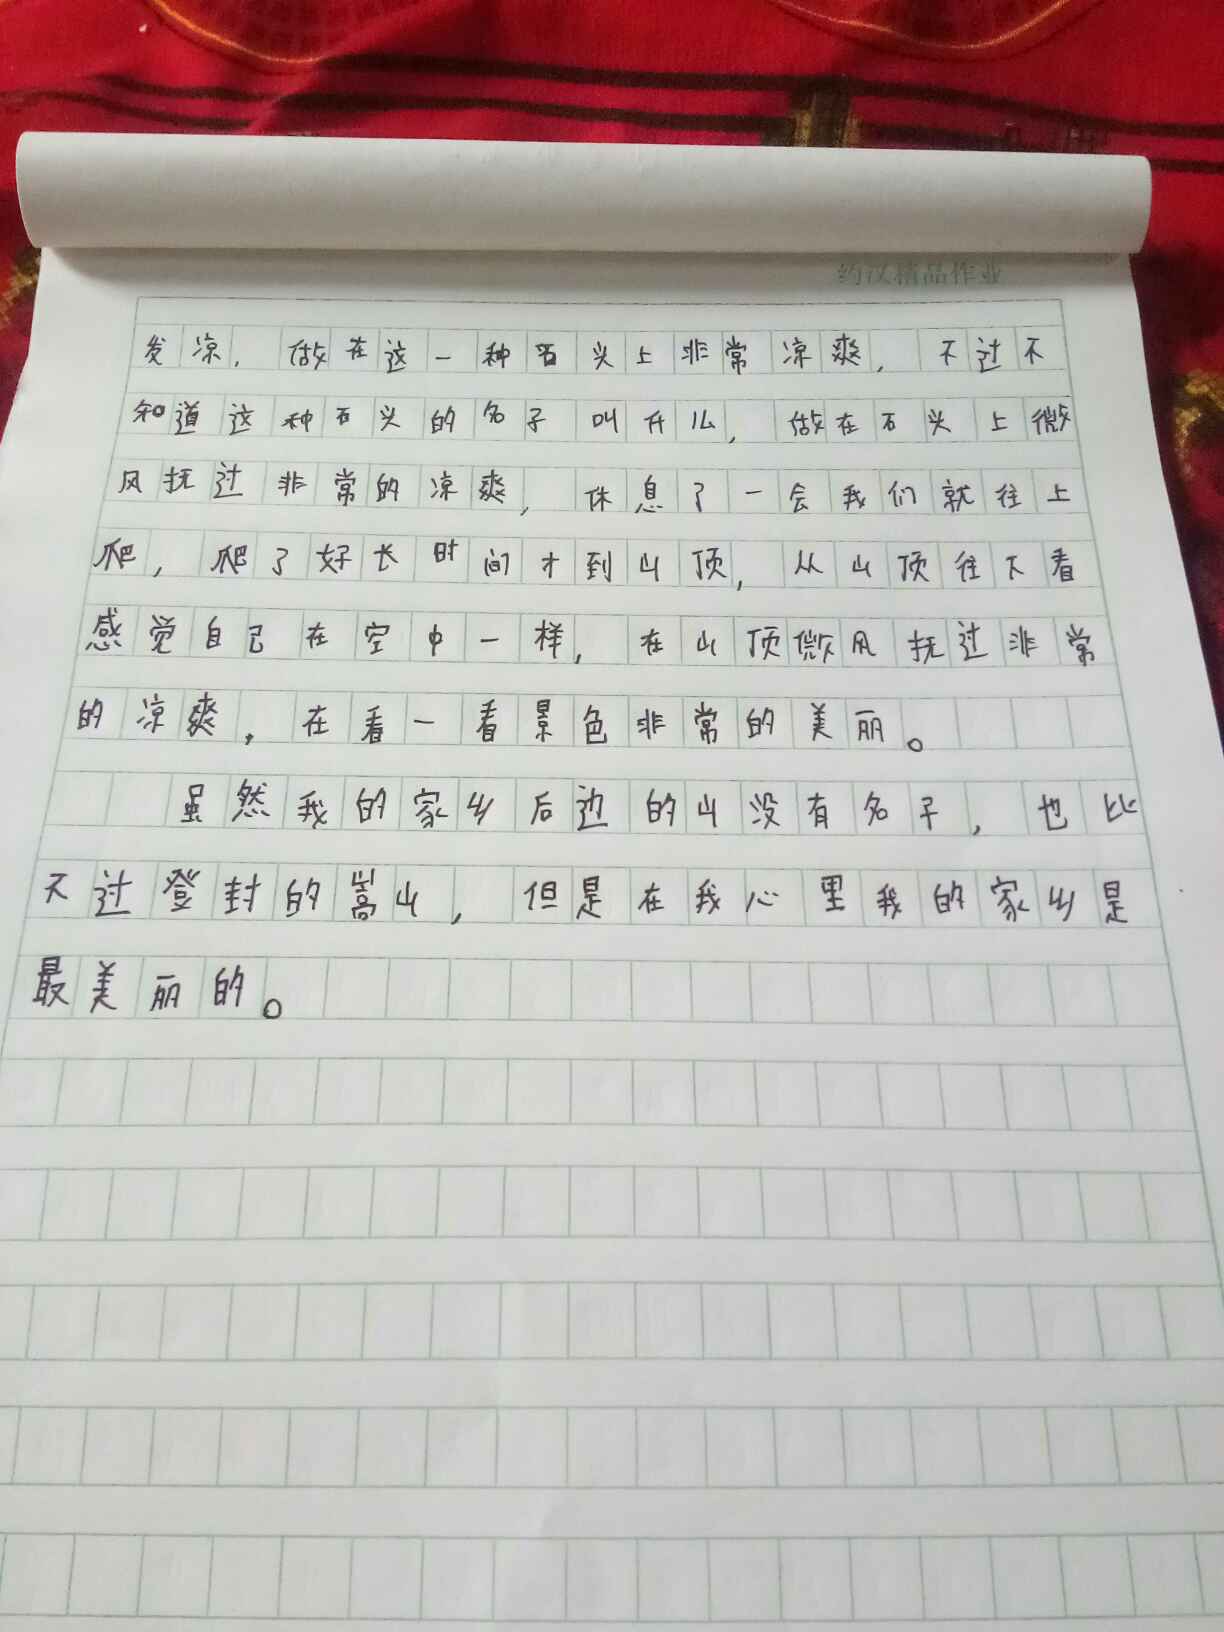 约汉精品作业
发凉，做在这一种石头上非常凉爽，不过不
知道这种石头的名子叫什么，做在石头上微
风抚过非常的凉爽，休息了一会我们就往上
爬，爬了好长时间才到山顶，从山顶往下看
感觉自己在空中一样，在山顶微风抚过非常
的凉爽，在看一看景色非常的美丽。
虽然我的家乡后边的山没有名子，也比
不过登封的嵩山，但是在我心里我的家乡是
最美丽的。